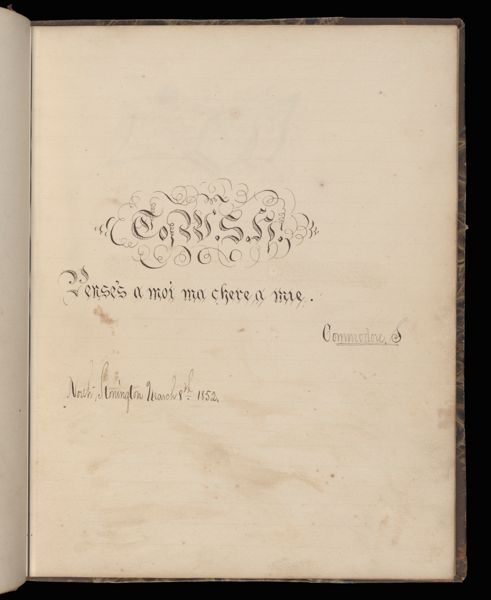 To W. S. H.
Pensés a moi ma chere a mie.
Commodore, S
North, Stonington March 8th 1852.